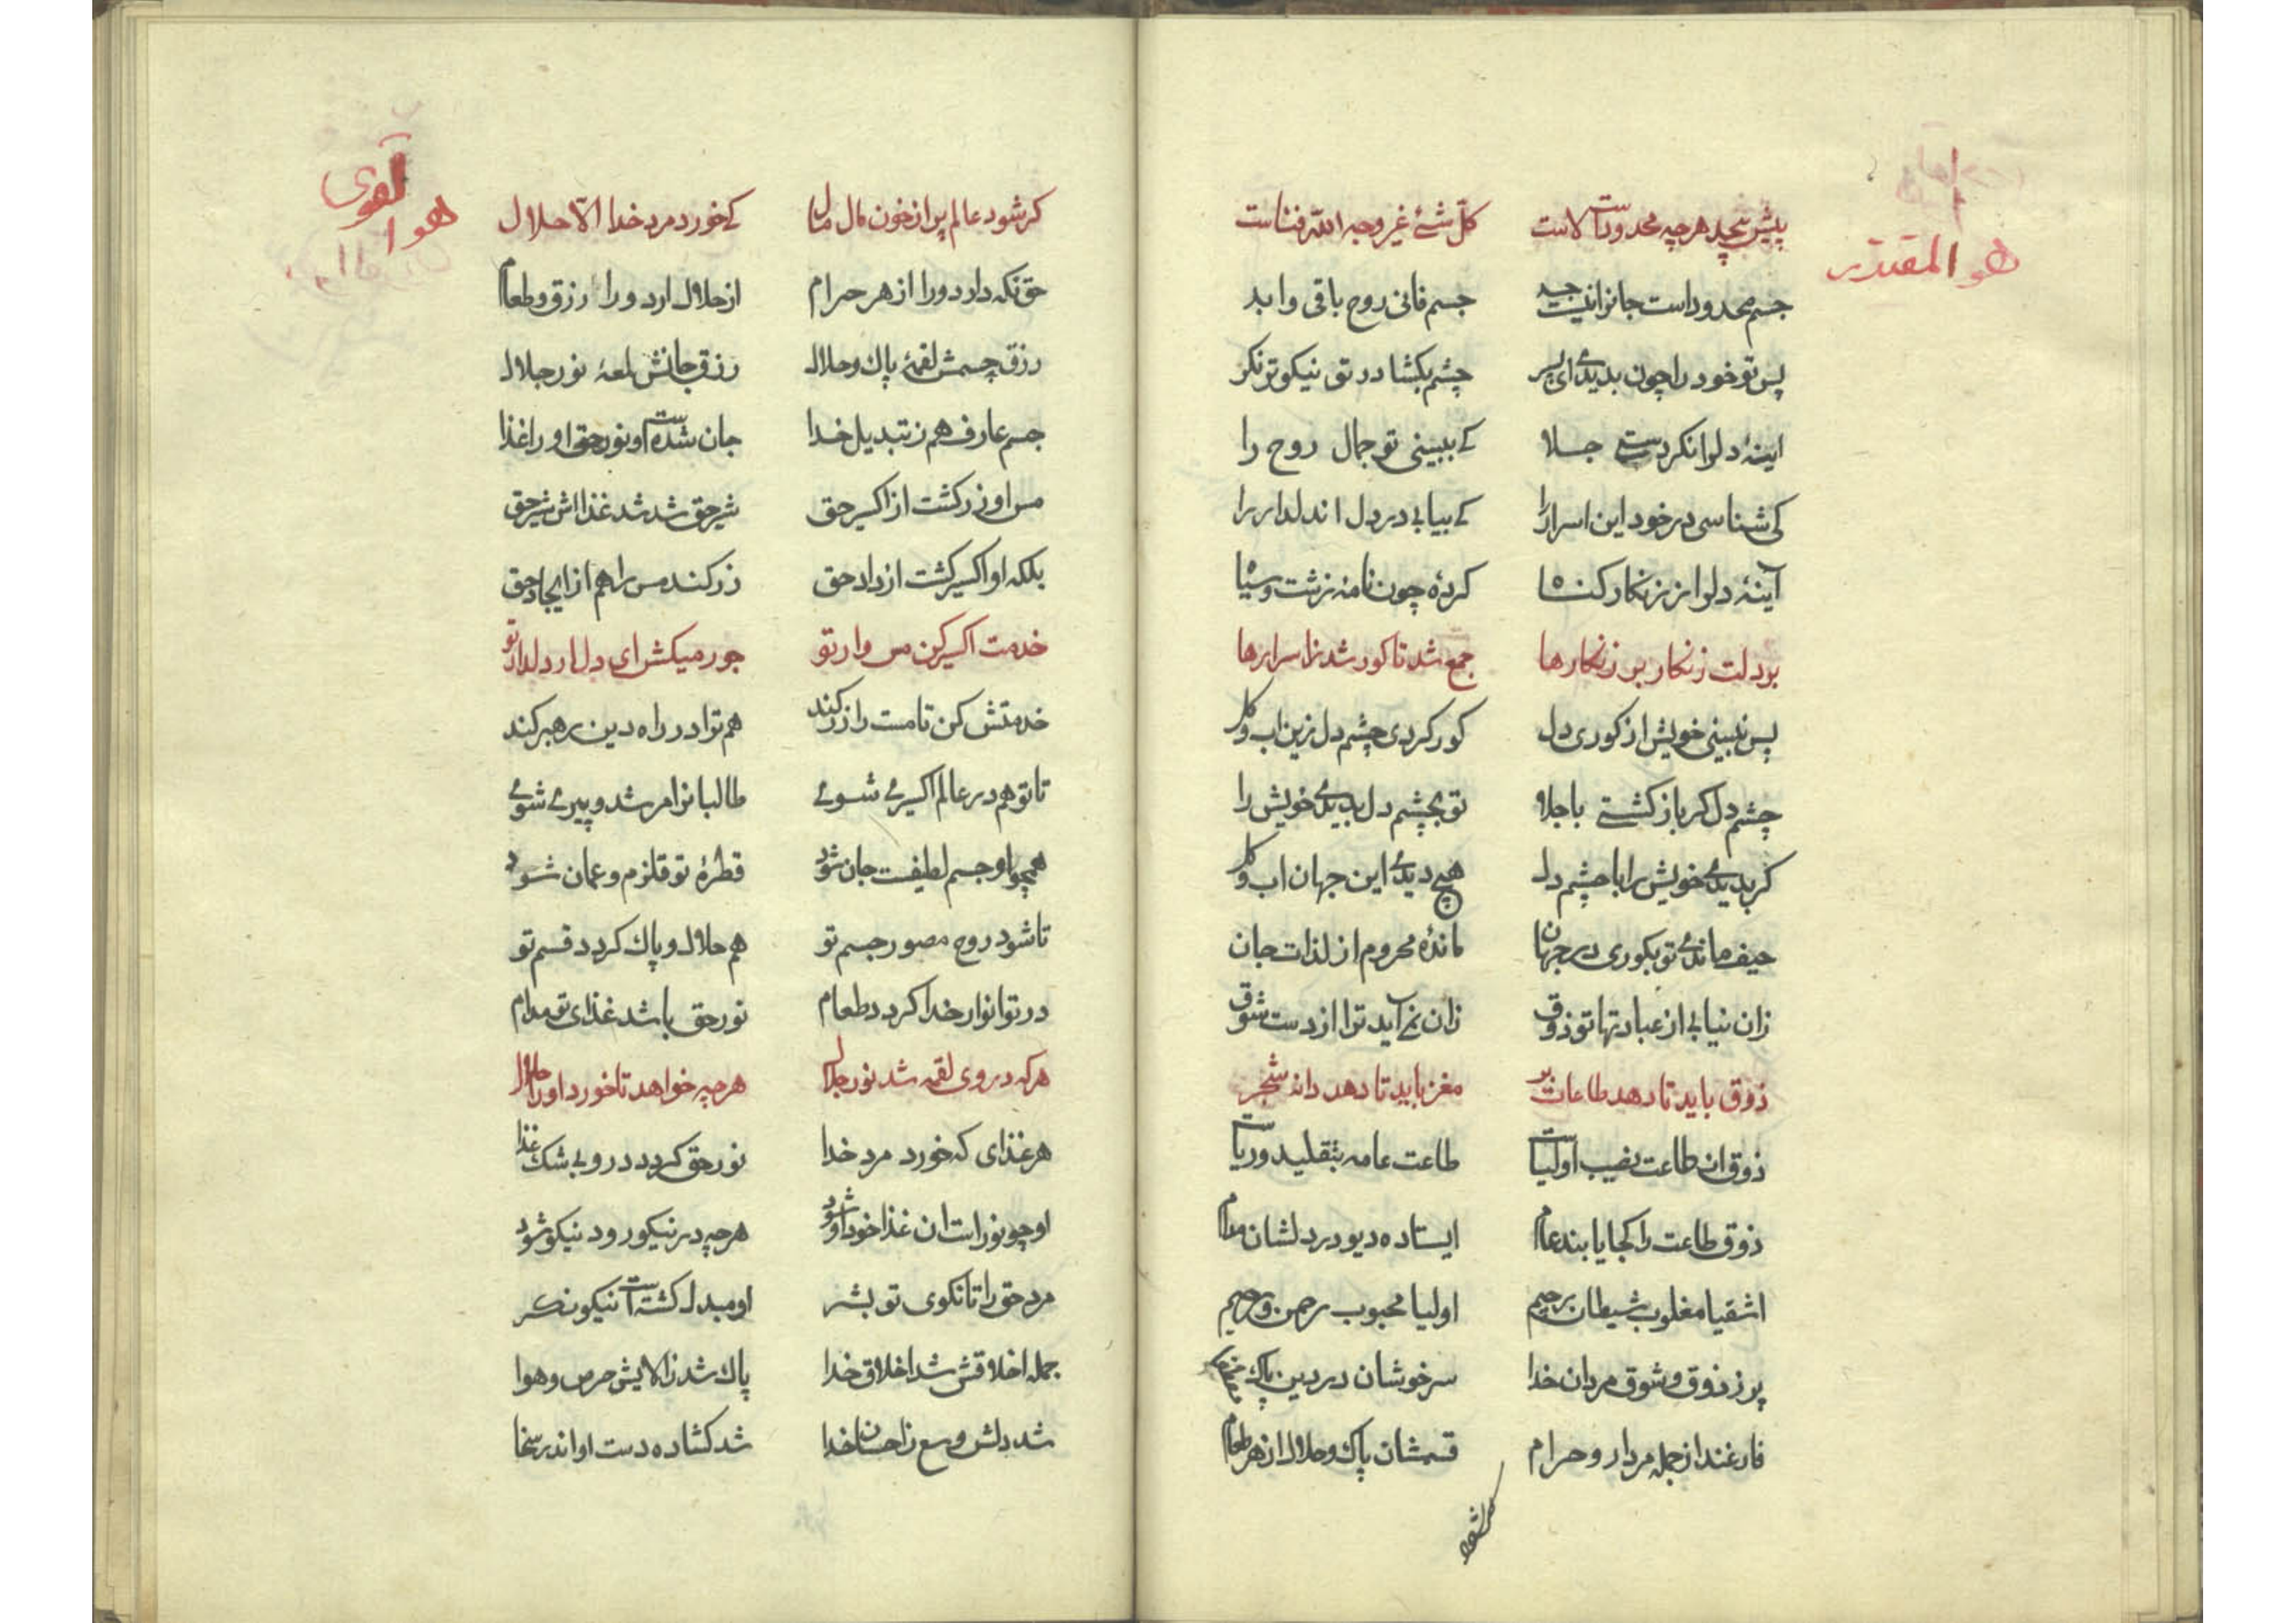 هو المقتدر
پیش بیحد هرچه محدودست لاست   کلّ شئ غیر وجه الله فناست
جسم محدود است جانرا نیست حد   جسم فانی روح باقی و ابد
پس تو خود را چون بدیدئ ای پسر   چشم بکشا در تو نیکوتر نکر
اینهٔ دلرا نکردستی جلا   کے ببینی تو جمال روح را
کی شناسی در خود این اسرار را   کے بیابی در دل اندلدار را
آینهٔ دلرا ز زنکار کناه   کردهٔ چون نامه زشت و سیاه
بر دلت زنکار بر زنکارها   جمع شد تا کور شد ز اسرارها
پس نبینی خویش از کوری دل   کور کردی چشم دل زین اب و کل
چشم دل کر باز کشتے باجلا   تو بچشم دل بدیدئ خویش را
کر بدیدئ خویش را با چشم دل   هیچ دیدئ این جهان اب و کل
حیف ماندئ تو بکوری در جهان   ماندهٔ محروم از لذات جان
زان نیابی از عبادتها تو ذوق   زان نمے اید ترا از دست شوق
ذوق باید تا دهد طاعات بر   مغز باید تا دهد دانه شجر
ذوق ان طاعت نصیب اولیاست   طاعت عامه بتقلید و ریاست
ذوق طاعت را کجا یابند عام   ایستاده دیو در دلشان مدام
اشقیا مغلوب شیطان رجیم   اولیا محبوب رحمن و رحیم
پر ز ذوق و شوق مردان خدا   سرخوشان در دین پاک
فارغند از جمله مردار و حرام   قسمشان پاک و حلال از هر طعام
کر شود
هو القوی
کر شود عالم پر از خون مال مال   کے خورد مرد خدا الّا حلال
حق نکه دارد ورا از هر حرام   از حلال ارد ورا رزق و طعام
رزق جسمش لقمهٔ پاک و حلال   رزق جانش لمعهٔ نور جلال
جسم عارف هم ز تبدیل خدا   جان شدست او نور حق او را غذا
مس او زر کشت از اکسیر حق   شیر حق شد شد غذااش شیر حق
بلکه او اکسیر کشت از داد حق   زر کند مس را هم از ایجاد حق
خدمت اکسیر کن مس وار تو   جور میکش ای دل از دلدار تو
خدمتش کن تا مست را زر کند   هم ترا در راه دین رهبر کند
تا تو هم در عالم اکسیرے شوئے   طالبانرا مرشد و پیرے شوئے
همچو او جسم لطیفت جان شود   قطرهٔ تو قلزم و عمان شود
تا شود روح مصور جسم تو   هم حلال و پاک کردد قسم تو
در تو انوار خدا کردد طعام   نور حق باشد غذای تو مدام
هر که در وی لقمه شد نور جلال   هر چه خواهد تا خورد او را حلال
هر غذای که خورد مرد خدا   نور حق کردد درو بی شک غذا
او چو نور است ان غذا خود او شود   هر چه در نیکو رود نیکو شود
مرد حق را تا نکوی تو بشر   او مبدل کشته است نیکو نکر
جمله اخلاقش شد اخلاق خدا   پاک شد ز الایش حرص و هوا
شد دلش وسع ز احسان خدا   شد کشاده دست او اندر سخا